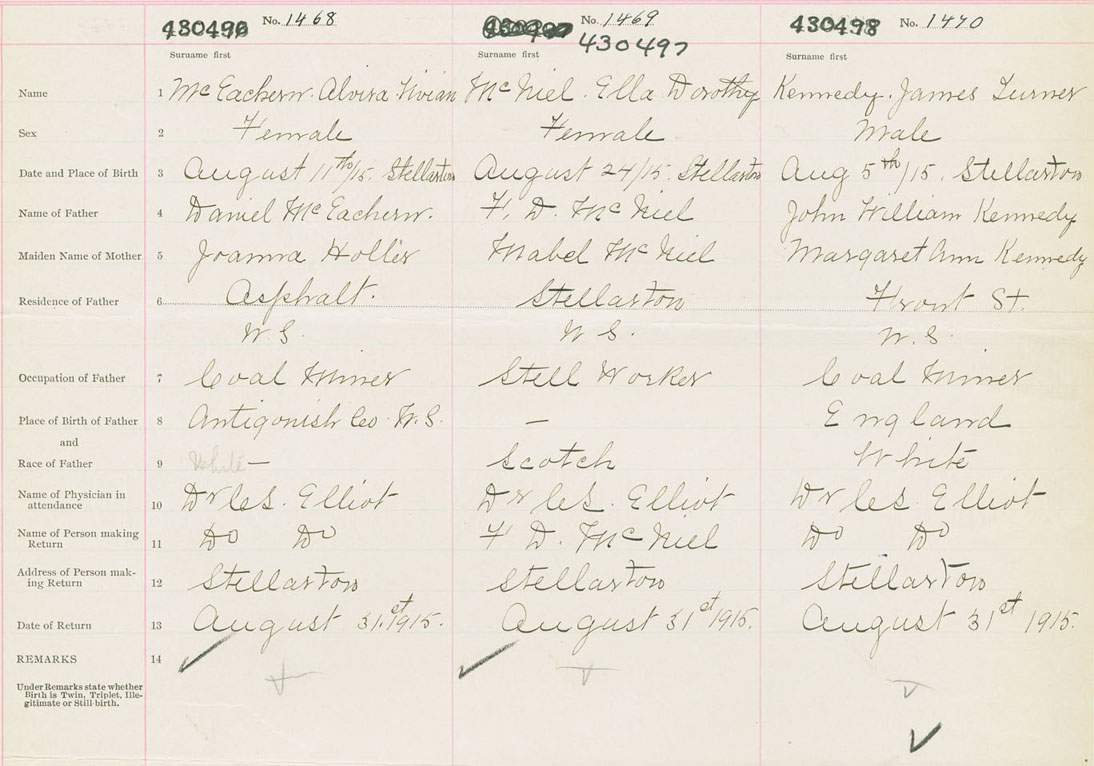 430496 No. 1468 No. 1469 430498 No. 1470
430497
Surname first Surname first Surname first
Name 1 McEachern. Alvira Vivian McNiel. Ella Dorothy Kennedy. James Turner
Sex 2 Female Female Male
Date and Place of Birth 3 August 11th/15. Stellarton August 24/15. Stellarton Aug 5th/15. Stellarton
Name of Father 4 Daniel McEachern. F. D. McNiel John William Kennedy
Maiden Name of Mother 5 Joanna Holler Mabel McNiel Margaret Ann Kennedy
Residence of Father 6 Asphalt. Stellarton Front St.
N.S. N.S. N.S.
Occupation of Father 7 Coal Miner Stell Worker Coal Miner
Place of Birth of Father 8 Antigonish Co. N.S. — England
and
Race of Father 9 White — Scotch White
Name of Physician in
attendance 10 Dr C.S. Elliot Dr C.S. Elliot Dr C.S. Elliot
Name of Person making
Return 11 Do Do F D. McNiel Do Do
Address of Person mak-
ing Return 12 Stellarton Stellarton Stellarton
Date of Return 13 August 31.st 1915. August 31st 1915. August 31st 1915.
REMARKS 14
Under Remarks state whether
Birth is Twin, Triplet, Ille-
gitimate or Still-birth.